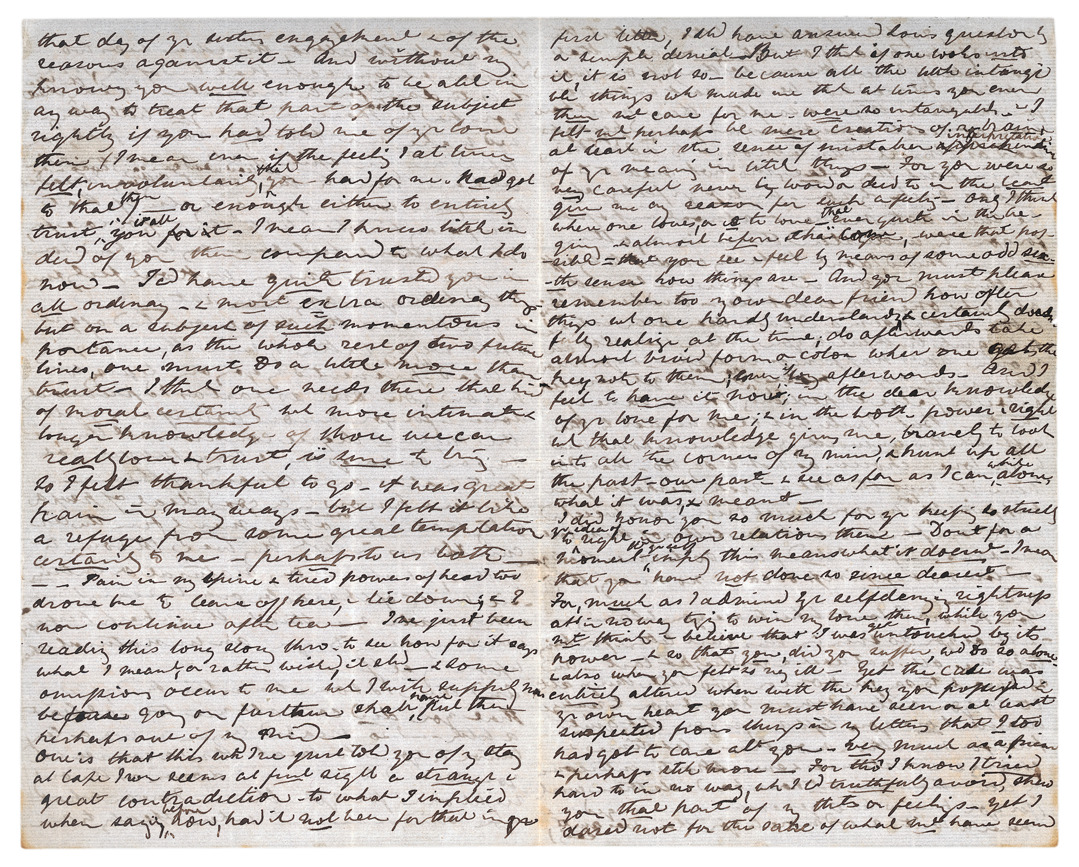 that day of yr sisters engagement & of the
reasons against it – And without my
knowing you well enough to be able in
any way to treat that part of the subject
rightly if you had told me of yr love
then (I mean even if the feeling I at times
felt, involuntarily, that you – had for me – had got
to that then – or enough either to entirely
trust, if you for it – I mean I knew little in
deed of you then compared to what I do
now – I'd have quite trusted you in
all ordinary – & most extra ordinary things
but on a subject of such momentous im
portance, as the whole rest of two future
lives, one must do a little more than
trust – I think one needs there that kind
of moral certainty wh more intimate &
longer knowledge of those we can
really love & trust, is sure to bring –
so I felt thankful to go – it was great
pain in many ways – but I felt it like
a refuge from some great temptation
certainly to me – perhaps to us both –
– Pain in my spine & tired powers of head too
drove me to leave off here, & lie down; & I
now continue after tea – I've just been
reading this long slow thro – to see how far it says
what I meant, or rather wish, it shd – & some
omissions occur to me wh I will supply now
before you go further
perhaps one of my
One is that this wh I've just told you of my stay
at Cape Town seems at first sight a strange &
great contradiction – to what I implied
when saying before how, had it not been for that in yr
first letter, I shd have answered Lou's question by
a simple denial – But I think if one looks into
it, it is not so – because all the little intangi
ble things wh made me think at times you even
then did care for me – were so intangible – & I
felt wd perhaps be mere creations of a brain,
at least in the sense of mistaken interpretation
of yr meaning in little things – For you were so
very careful never by word or deed to in the least
give me any reason for such a belief – only I think
where one loves, or is to love that ever quite in the be-
ging – & almost before were that pos-
sible – you see & feel by means of some odd six
-th sense how things are – And you must please
remember too your dear friend how often
things wh one hardly understands, & certainly doesnt
fully realize at the time, do afterwards take
almost vivid form & color when one gets the
key note to them, long afterwards – And I
feel to have it now, in the dear knowledge
of yr love for me; & in the both power & right
wh that knowledge gives me, bravely to look
into all the corners of my mind, & hunt up all
the past – our past & see as far as I can
what it was, & meant –
I did honor you so much for yr keeping so strictly
to right in our relations then – Dont for a
moment imply this means what it doesnt – I mean
that you "have not done so since dearest –
For, much as I admired yr selfdenying rightness
all in no way trying to win my love then, while you
not think – believe that I was untouched by its
power – & so that you, did you suffer, wd do so alone
& also when you felt so very ill – Yet the case was
entirely altered when with the key you
yr own heart you must have seen or at least
suspected from things in my letters that I too
had got to care abt you – very much as a friend
& perhaps still more – For tho' I know I tried
hard to in no way, wh I cd truthfully avoid, show
you that part of my thts or feelings – yet I
dared not for the sake of what have seem